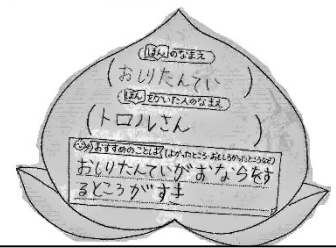 ほんのなまえ
(おしりたんてい)
ほんをかいた人のなまえ
(トロルさん)
おすすめのことば(よかったところ・おもしろかったところなど)
おしりたんていがおならをす
るところがすき